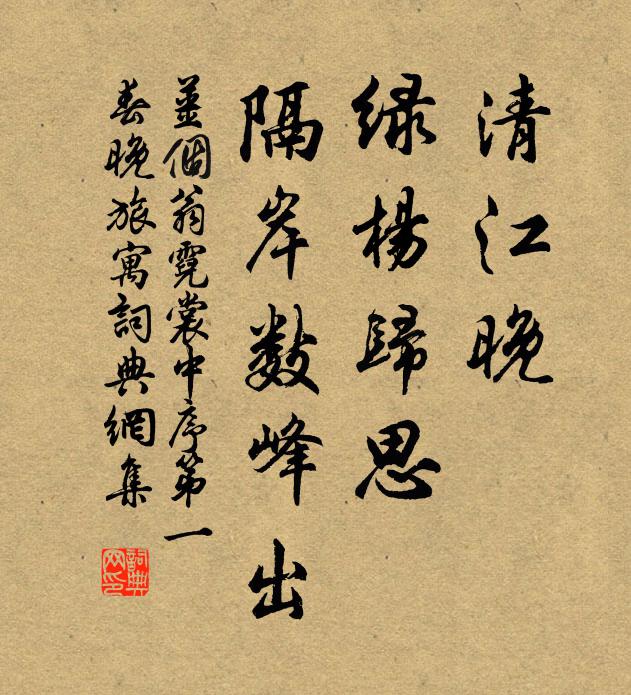 清江晚
绿楊歸思
隔岸数峰出
薑個翁霓裳中序第一
春晚旅寓詞典網集
詞典网印